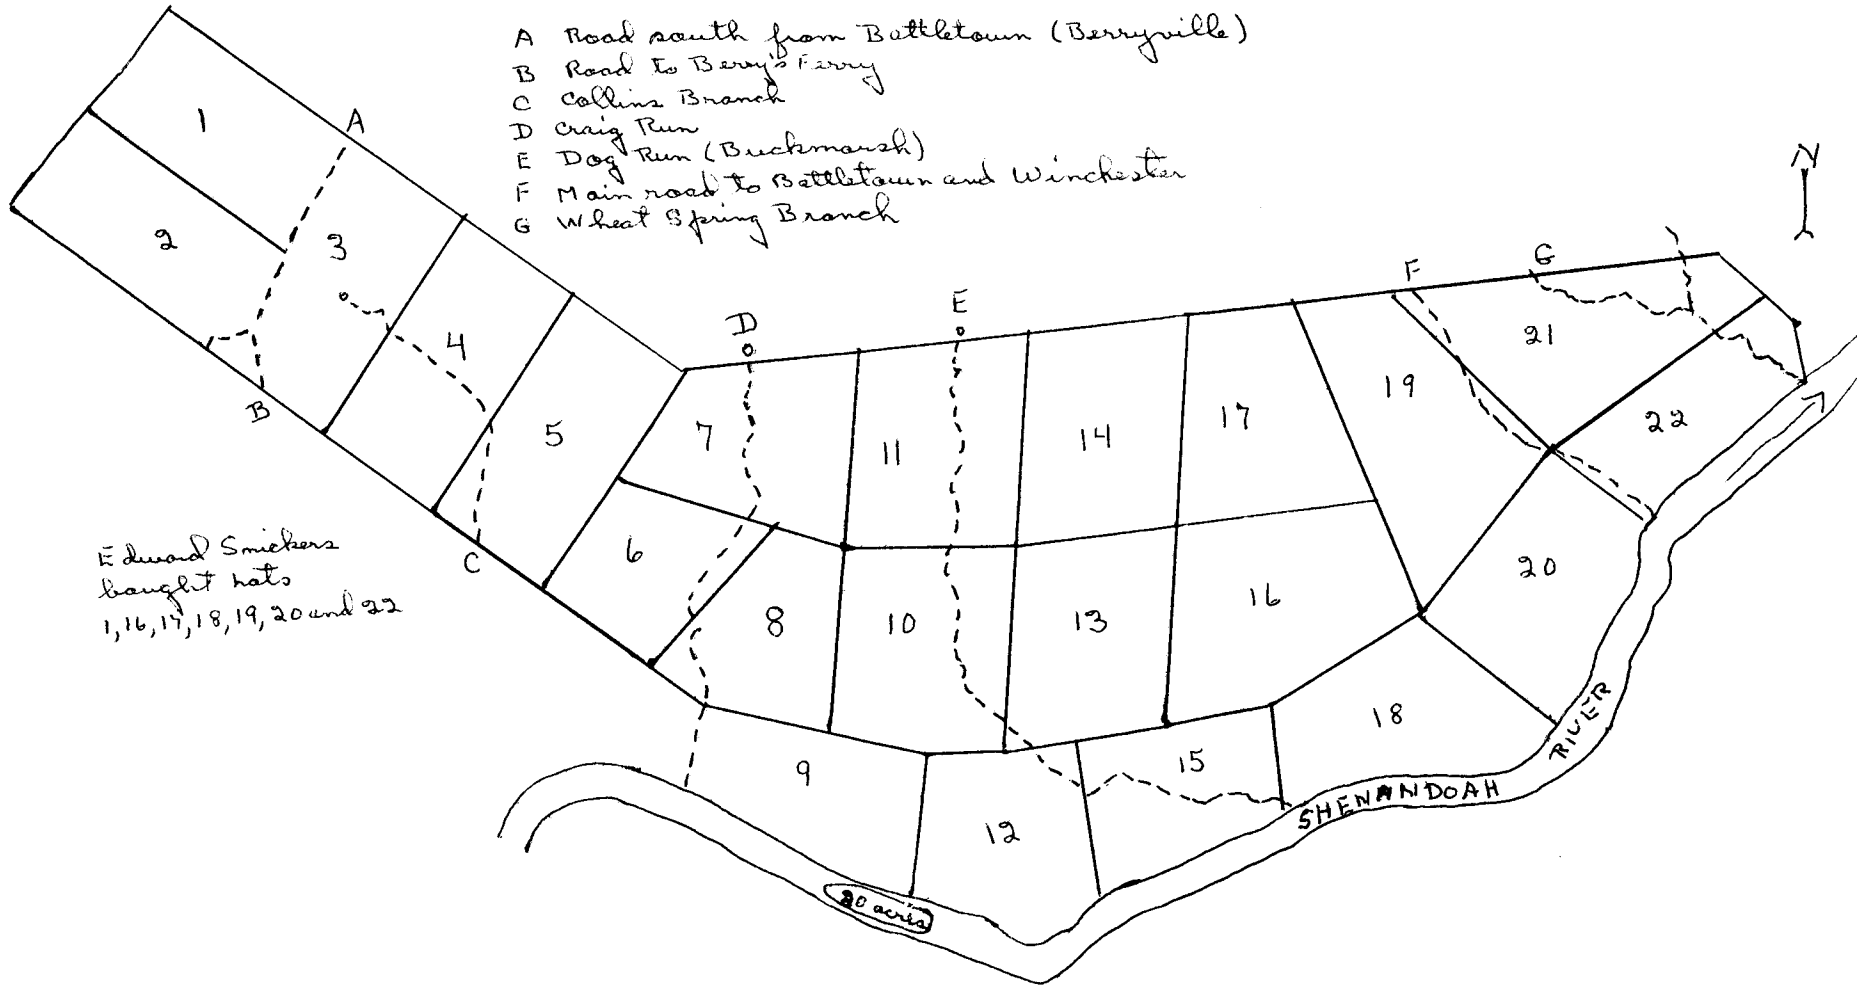 A Road south from Battletown (Berryville)
B Road to Berry's Ferry
C Collins Branch
D Craig Run
E Dog Run (Buckmarsh)
F Main road to Battletown and Winchester
G Wheat Spring Branch
N
A
1
2
3
B
4
C
5
D
7
6
E
11
8
10
9
14
13
12
17
16
15
F
G
19
21
22
20
18
Edward Snickers
bought Lots
1, 16, 17, 18, 19, 20 and 22
20 acres
SHENANDOAH
RIVER